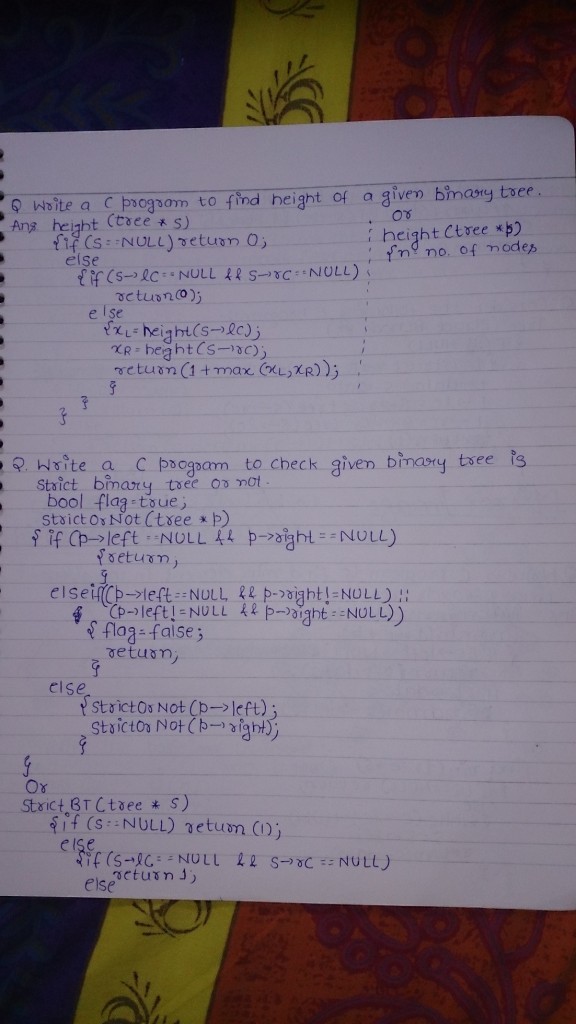 Q Write a C program to find height of a given binary tree.
Ans. height (tree * s)
{if (S==NULL) return 0;
else
{if (S→lC==NULL && S→rC==NULL)
return(0);
else
{xL=height(S→lC);
xR=heght(S→rC);
return(1+max(xL,xR));
}
}
}
or
height (tree *p)
{n= no. of nodes
Q. Write a C program to check given binary tree is
strict binary tree or not.
bool flag=true;
strictOrNot (tree *p)
{ if (p→left ==NULL && p→right ==NULL)
{return;
}
elseif((p→left==NULL && p→right!=NULL) ||
(p→left!=NULL && p→right==NULL))
{ flag=false;
return;
}
else
{strictOrNot (p→left);
StrictOrNot (p→right);
}
}
Or
Strict_BT (tree * S)
{if (S==NULL) return (1);
else
{if (S→lC==NULL && S→rC==NULL)
return 1;
else